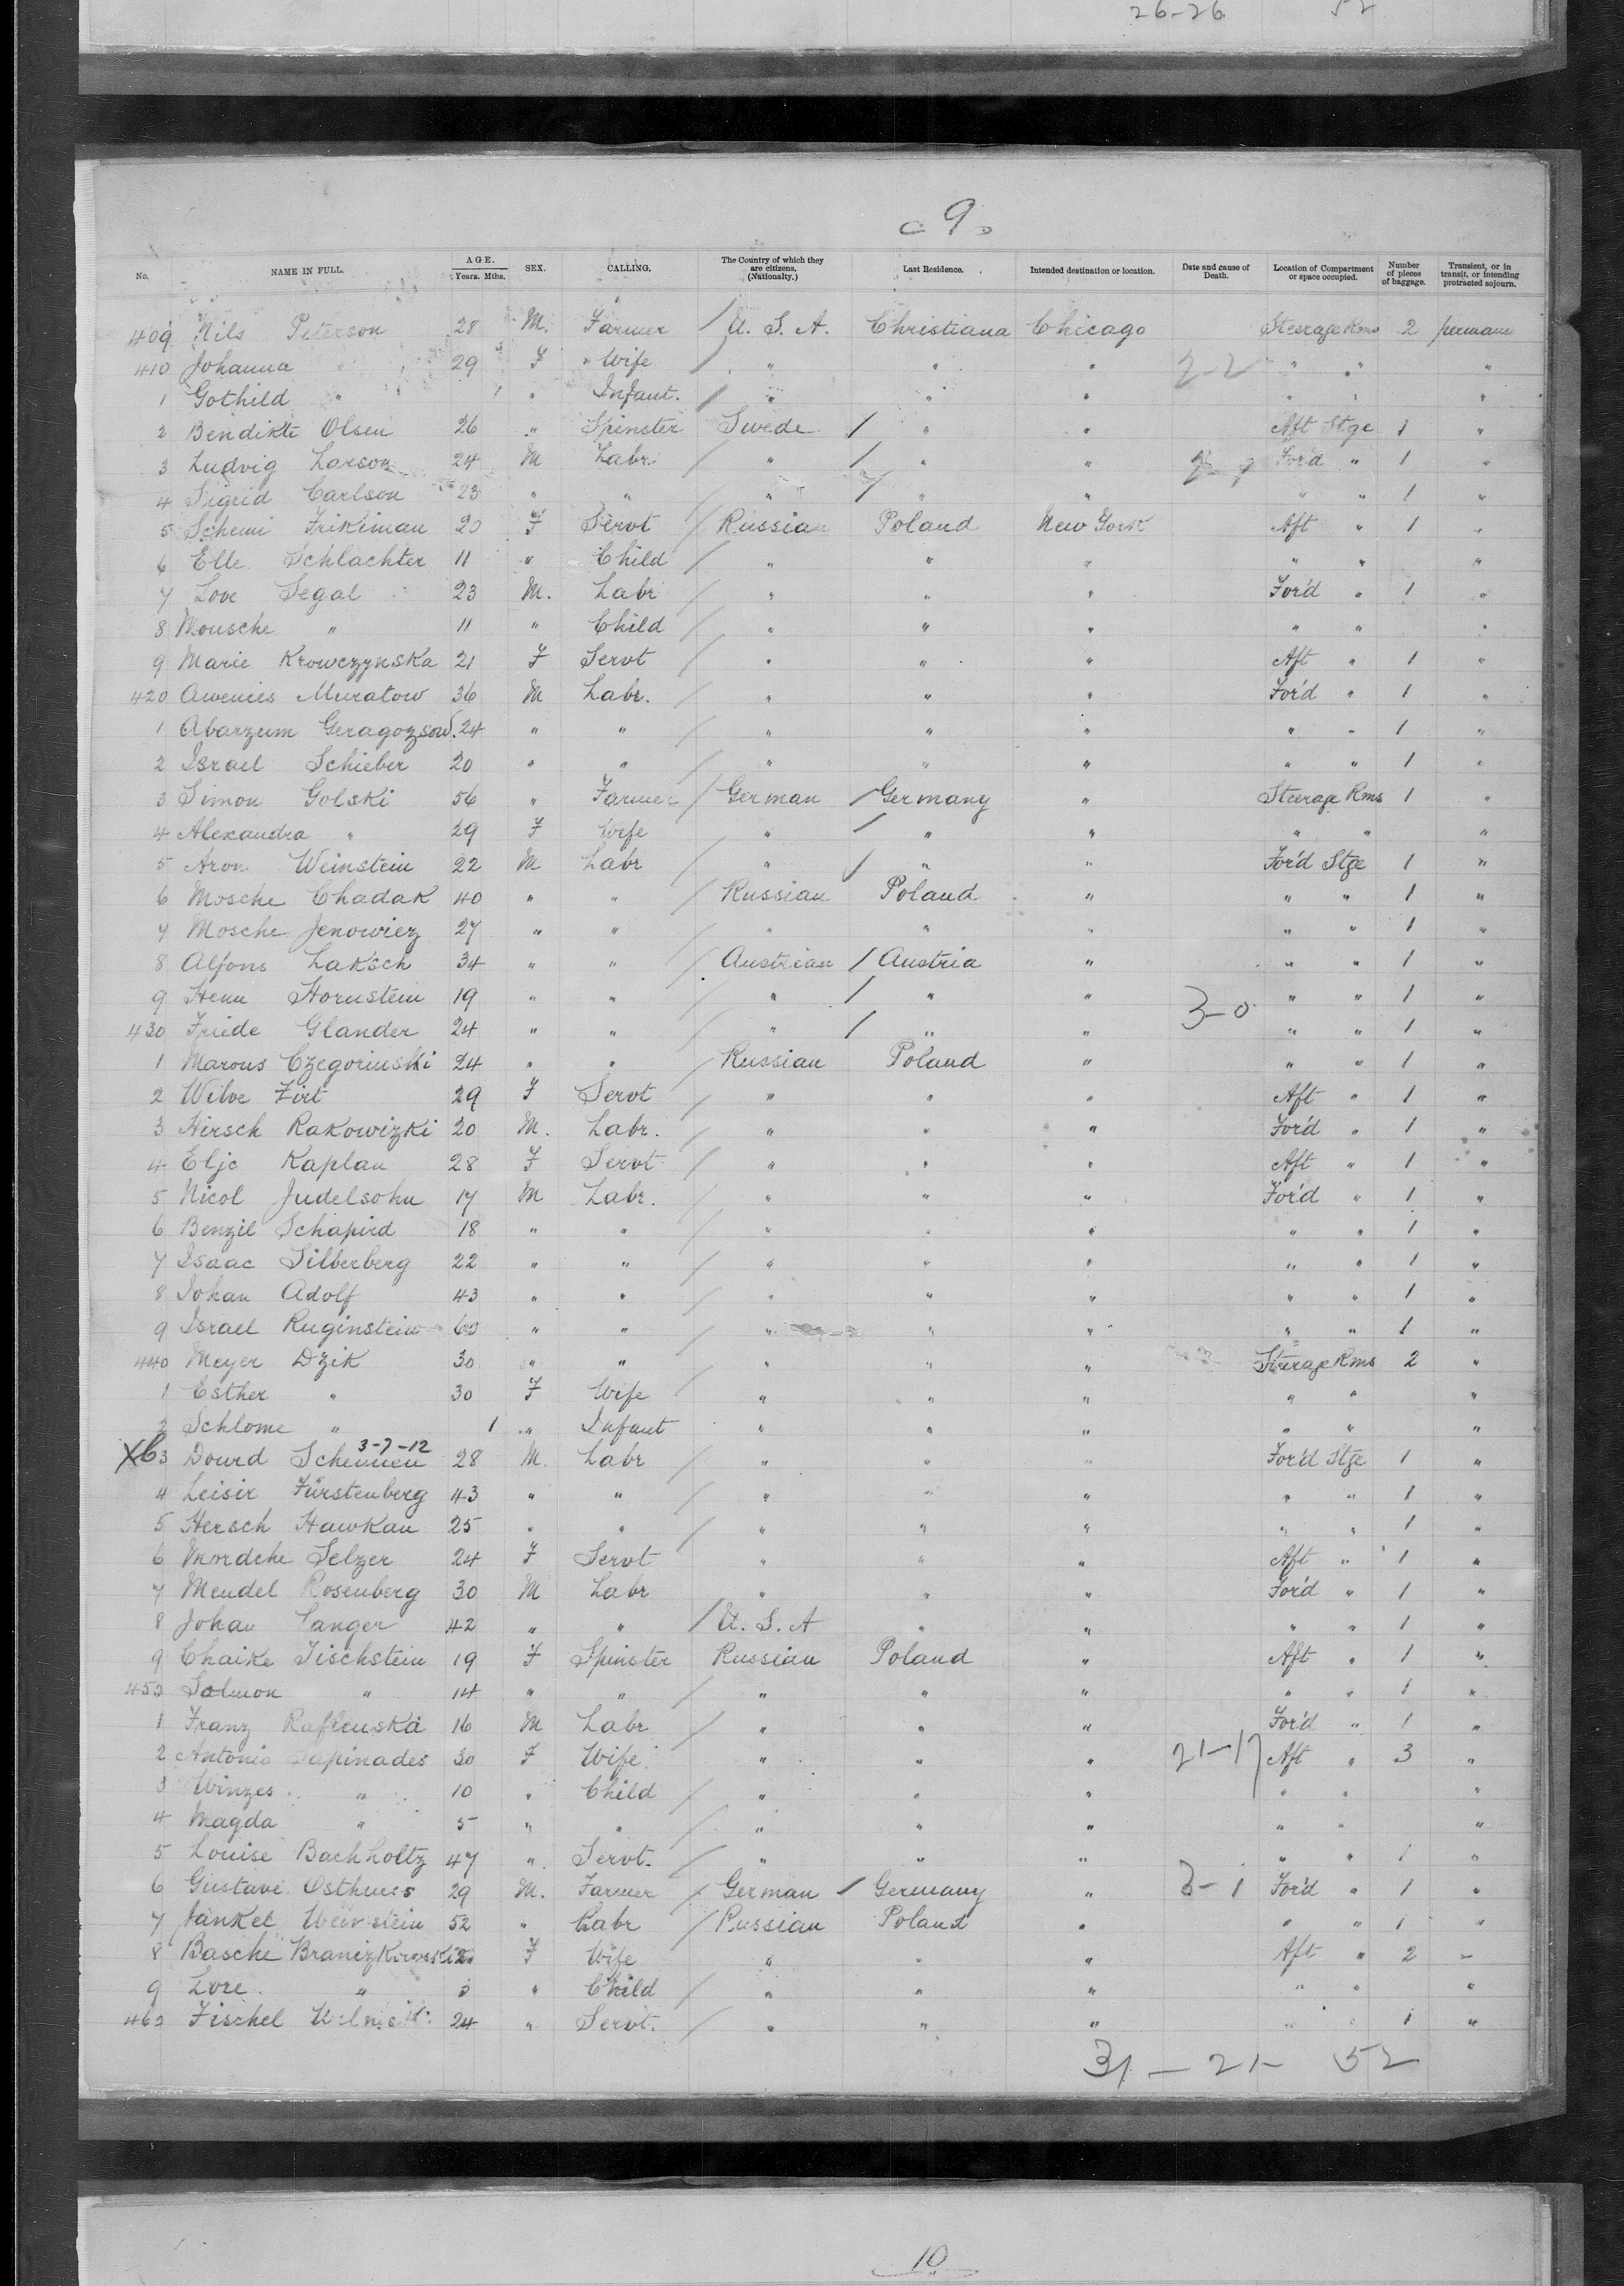 26-26 52
9
No. NAME IN FULL. AGE. Years. Mths. SEX. CALLING. The Country of which they are citizens. (Nationalty.) Last Residence. Intended destination or location. Date and cause of Death. Location of Compartment or space occupied. Number of pieces of baggage. Transient, or in transit, or intending protracted sojourn.
409 Nils Peterson 28 M. Farmer / U. S. A. Christiana Chicago Steerage Rms 2 permane
410 Johanna " 29 F " Wife / " " " 2-2 " " "
1 Gothild " 1 " Infant. / " " " " " "
2 Bendikte Olsen 26 " Spinster Swede / " " Aft Stge 1 "
3 Ludvig Larson 24 M Labr / " / " " For'd " 1 "
4 Sigrid Carlson 23 " " / " / " " " " 1 "
5 Schemi Frikiman 20 F Servt / Russian Poland New York Aft " 1 "
6 Elle Schlachter 11 " Child / " " " " " "
7 Love Segal 23 M. Labr / " " " For'd " 1 "
8 Mousche " 11 " Child / " " " " " "
9 Marie Krowczynska 21 F Servt / " " " Aft " 1 "
420 Awenies Muratow 36 M Labr. / " " " For'd " 1 "
1 Abarzum Geragozsow. 24 " " / " " " " " 1 "
2 Israel Schieber 20 " " / " " " " " 1 "
3 Simon Golski 56 " Farmer / German / Germany " Steerage Rms 1 "
4 Alexandra " 29 F Wife " / " " " " "
5 Aron Weinstein 22 M Labr / " / " " For'd Stge 1 "
6 Mosche Chadak 40 " " / Russian Poland " " " 1 "
7 Mosche Jenowiez 27 " " / " " " " " 1 "
8 Alfons Laksch 34 " " / Austrian / Austria " " " 1 "
9 Henu Hornstein 19 " " / " / " " 3-0 " " 1 "
430 Friede Glander 24 " " / " / " " " " 1 "
1 Marous Czegoriuski 24 " " / Russian Poland " " " 1 "
2 Wilve Zirt 29 F Servt / " " " Aft " 1 "
3 Hirsch Rakowizki 20 M. Labr. / " " " For'd " 1 "
4 Elje Kaplan 28 F Servt / " " " Aft " 1 "
5 Nicol Judelsohn 17 M Labr. / " " " For'd " 1 "
6 Benzil Schapird 18 " " / " " " " " 1 "
7 Isaac Silberberg 22 " " / " " " " " 1 "
8 Johan Adolf 43 " " / " " " " " 1 "
9 Israel Ruginstein 60 " " / " " " " " 1 "
440 Meyer Dzik 30 " " / " " " Steerage Rms 2 "
1 Esther " 30 F Wife / " " " " " "
2 Schlome " 1 " Infant " " " " " "
3-7-12
X63 Dourd Scheunen 28 M. Labr / " " " For'd Stge 1 "
4 Leisir Fürstenberg 43 " " / " " " " " 1 "
5 Hersch Hawkan 25 " " / " " " " " 1 "
6 Mordche Selzer 24 F Servt " " " Aft " 1 "
7 Mendel Rosenberg 30 M Labr / " " " For'd " 1 "
8 Johan Sanger 42 " " / U. S. A " " " " 1 "
9 Chaike Fischstein 19 F Spinster Russian Poland " Aft " 1 "
450 Salmon " 14 " " / " " " " " 1 "
1 Franz 16 M Labr / " " " For'd " 1 "
2 Antonio Sapinades 30 F Wife / " " " 21-17 Aft " 3 "
3 Winzes " 10 " Child / " " " " " "
4 Magda " 5 " " / " " " " " "
5 Louise Bachholtz 47 " Servt. / " " " " " 1 "
6 Gustave Osthues 29 M. Farmer / German / Germany " 3-1 For'd " 1 "
7 Jankel Weinstein 52 " Labr / Russian Poland " " " 1 "
8 Basche Branizkowski F Wife " " " Aft " 2 "
9 Lore " " Child / " " " " " "
460 Fischel 24 " Servt. / " " " " 1 "
31 - 21 - 52
10